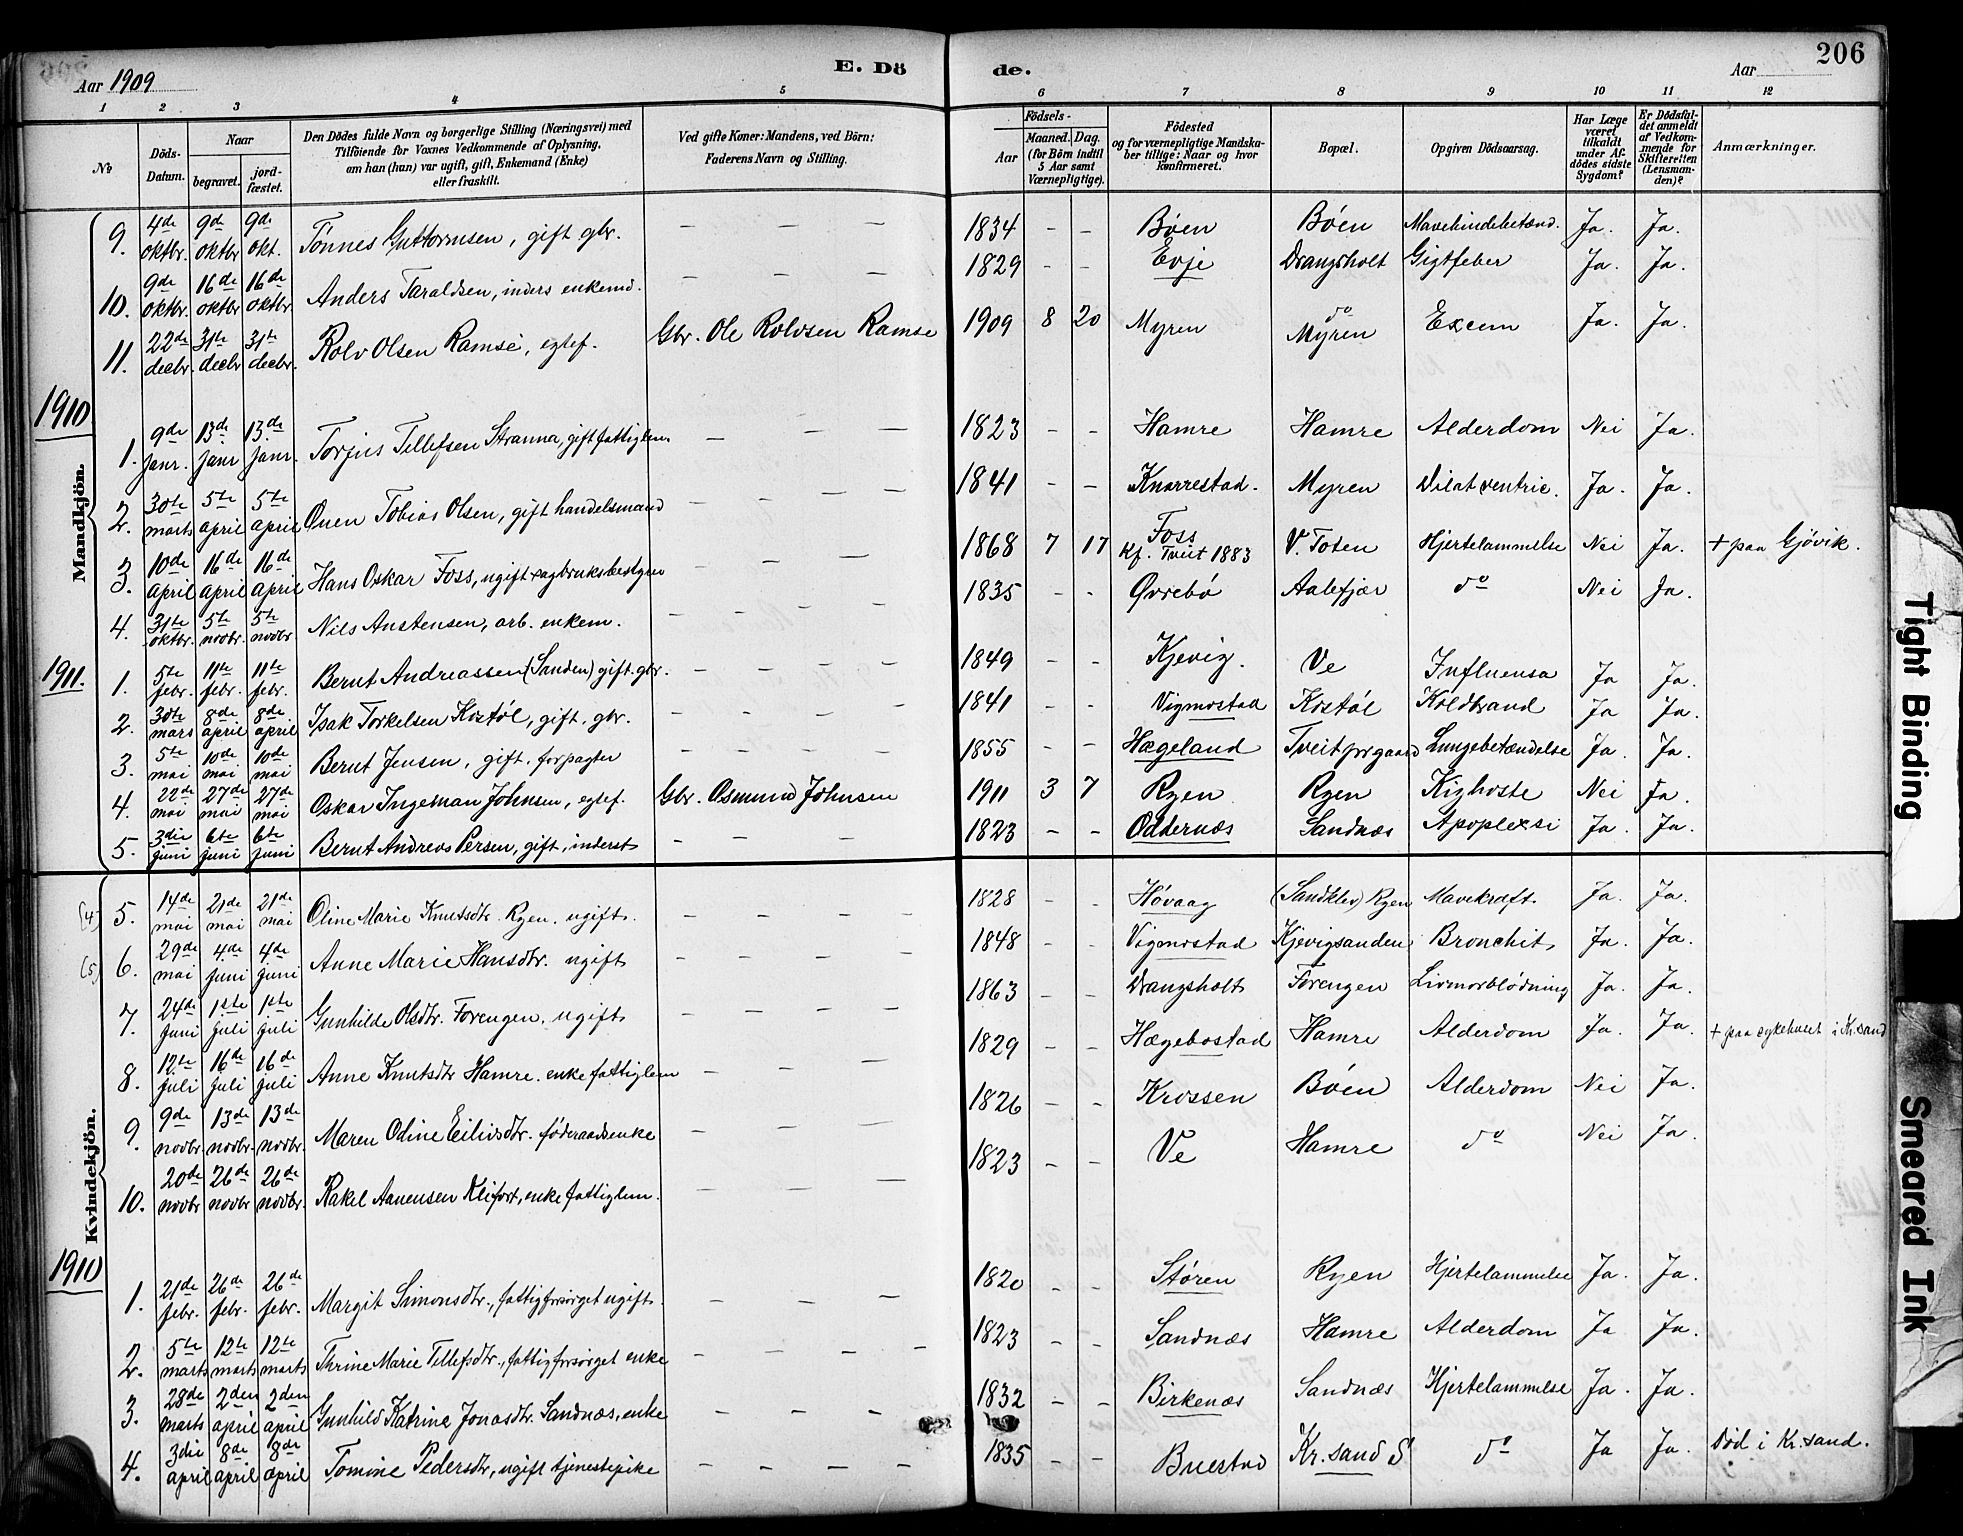 206
Aar 1909 E. Dö de. Aar
1 2 3 4 5 6 7 8 9 10 11 12
№ Döds-Datum. Naar begravet. jord-fæstet. Den Dödes fulde Navn og borgerlige Stilling (Næringsvei) med Tilföiende for Voxnes Vedkommende af Oplysning, om han (hun) var ugift, gift, Enkemand (Enke) eller fraskilt. Ved gifte Koner: Mandens, ved Börn: Faderens Navn og Stilling. Födsels- Aar Maaned. Dag. (for Börn indtil 5 Aar samt Værnepligtige). Födested og for værnepligtige Mandskaber tillige: Naar og hvor konfirmeret. Bopæl. Opgiven Dödsaarsag. Har Læge været tilkaldt under Afdödes sidste Sygdom? Er Dödsfaldet anmeldt af Vedkommende for Skifteretten (Lensmanden)? Anmærkninger.
Mandkjön.
9. 4de oktbr. 9de oktbr 9de okt. Tønnes Guttormsen, gift gbr. — — — 1834 - - Bøen Bøen Mavehindebetænd. Ja. Ja.
10. 9de oktbr. 16de oktbr 16de oktbr Anders Taraldsen, inders enkemd. — — — 1829 - - Evje Drangsholt Gigtfeber Ja. Ja.
11. 22de decbr. 31te decbr 31te decbr. Rolv Olsen Ramse, egtef. Gbr. Ole Rolvsen Ramse 1909 8 20 Myren do Myren Excem Ja. Ja.
1910
1. 9de Janr. 13de Janr 13de Janr. Torjus Tellefsen Stranna, gift fattiglem. — — — 1823 - - Hamre Hamre Alderdom Nei Ja.
2. 30te marts 5te april 5te april Onen Tobias Olsen, gift handelsmand — — — — 1841 - - Knarrestad. Myren Dilat ventric. Ja. Ja.
3. 10de april 16de april 16de april Hans Oskar Foss, ugift sagbruksbestyrer — — — 1868 7 17 Foss Kf. Tveit 1883 V. Toten Hjertelammelse Nei Ja. + paa Gjøvik.
4. 31te oktbr. 5te novbr. 5te novbr. Nils Anstensen, arb. enkem. — — — — 1835 - - Øvrebø Aalefjær do Nei Ja.
1911.
1. 5te febr. 11te febr. 11te febr. Bernt Andreassen (Sanden) gift. gbr. — — — — 1849 - - Kjevig. Ve Influensa Ja Ja.
2. 30te mars 8de april 8de april Isak Torkelsen Kostøl, gift, gbr. — — — — 1841 - - Vigmostad Kostøl Koldbrand Ja Ja.
3. 5te mai 10de mai 10de mai Bernt Jensen, gift, forpagter — — — — 1855 - - Hægeland Tveit prgaard Lungebetændelse Ja. Ja.
4. 22de mai 27de mai 27de mai Oskar Ingeman Johnsen, egtef. Gbr. Osmund Johnsen 1911 3 7 Ryen Ryen Kighoste Nei Ja.
5. 3die juni 6te juni 6te juni Bernt Andreas Persen, gift, inderst — — — 1823 - - Oddernæs Sandnæs Apoplexsi Ja. Ja.
Kvindekjön.
(4) 5. 14de mai 21de mai 21de mai Oline Marie Knutsdtr. Ryen. ugift. — — — — 1828 - - Høvaag (Sandklev) Ryen Mavekræft. Ja. Ja.
(5) 6. 29de mai 4de juni 4de juni Anne Marie Hansdtr. ugift — — — — 1848 - - Vigmostad Kjevigsanden Bronchit Ja. Ja.
7. 24de juni 1ste juli 1ste juli Gunhilde Olsdtr. Forengen. ugift — — — — 1863 - - Drangsholt Forengen Livmorblødning Ja. Ja.
8. 12te juli 16de juli 16de juli Anne Knutsdtr Hamre. enke fattiglem — — — 1829 - - Hægebostad Hamre Alderdom Ja. Ja. + paa sykehuset i Kr.sand
9. 9de novbr 13de novbr. 13de novbr. Maren Odine Eilivsdtr. føderaadsenke — — — 1826 - - Krossen Bøen Alderdom Nei Ja.
10. 20de novbr 26de novbr 26de novbr. Rakel Aanensen Kleifort, enke fattiglem. — — — 1823 - - Ve Hamre do Nei Ja.
1910
1. 21de febr. 26de febr. 26de febr. Margit Simonsdtr., fattigforsørget ugift. — — — 1820 - - Støren Ryen Hjertelammelse Ja. Ja.
2. 5te marts 12te marts 12te marts Thrine Marie Tellefsdtr., fattigforsørget enke — — — — 1823 - - Sandnæs Hamre Alderdom Ja Ja.
3. 28de marts 2den april 2den april Gunhild Katrine Jonasdtr. Sandnæs, enke — — — 1832 - - Birkenæs Sandnæs Hjertelammelse Ja. Ja.
4. 3die april 8de april 8de april Tomine Pedersdtr, ugift tjenestepike — — — — 1835 - - Buestad Kr.sand S do Ja Ja. Død i Kr.sand.
Tight Binding
Smeared Ink